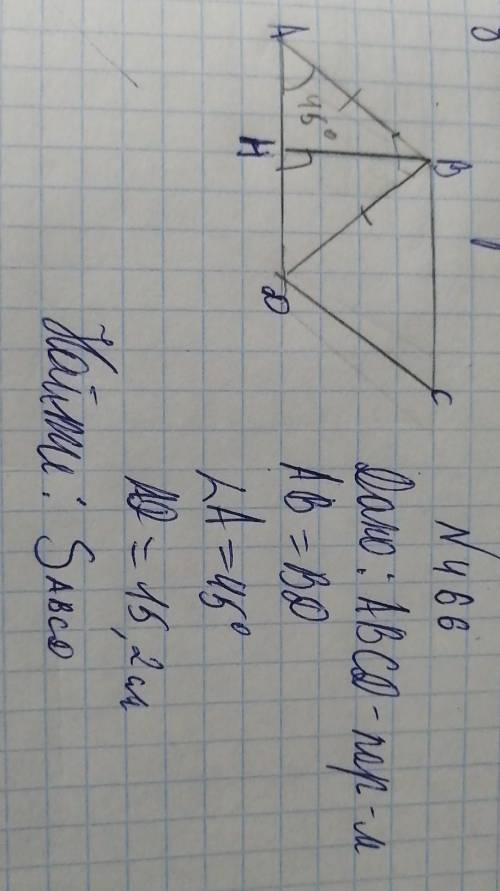 N 466
Дано: ABCD - пар-м
AB = BD
∠A = 45°
AD = 15,2 см
Найти: SABCD
A
45°
H
B
D
C